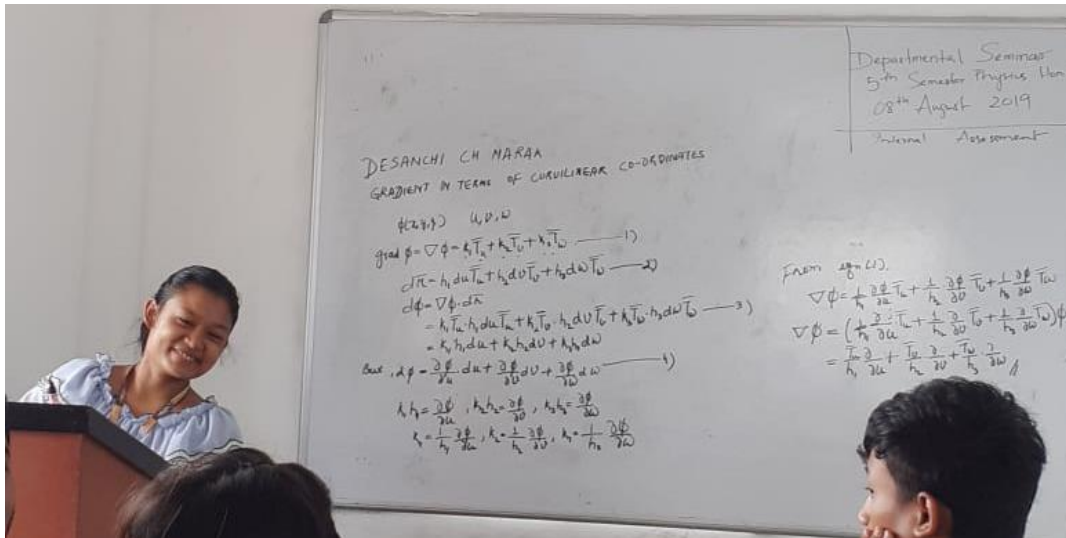 Departmental Seminar
5th Semester Physics Hon
08th August 2019
Internal Assessment
DESANCHI CH MARAK
GRADIENT IN TERMS OF CURVILINEAR CO-ORDINATES
ϕ(x,y,z) u,v,w
grad ϕ = ∇ϕ = k₁T̅ᵤ + k₂T̅ᵥ + k₃T̅_w ——— 1)
d̅r̅ = h₁du T̅ᵤ + h₂dv T̅ᵥ + h₃dw T̅_w ——— 2)
dϕ = ∇ϕ·d̅r̅
= k₁T̅ᵤ·h₁du T̅ᵤ + k₂T̅ᵥ·h₂dv T̅ᵥ + k₃T̅_w·h₃dw T̅_w ——— 3)
= k₁h₁du + k₂h₂dv + k₃h₃dw
But, dϕ = ∂ϕ/∂u du + ∂ϕ/∂v dv + ∂ϕ/∂w dw ——— 4)
k₁h₁ = ∂ϕ/∂u, k₂h₂ = ∂ϕ/∂v, k₃h₃ = ∂ϕ/∂w
k₁ = 1/h₁ ∂ϕ/∂u, k₂ = 1/h₂ ∂ϕ/∂v, k₃ = 1/h₃ ∂ϕ/∂w
From eqn (1).
∇ϕ = 1/h₁ ∂ϕ/∂u T̅ᵤ + 1/h₂ ∂ϕ/∂v T̅ᵥ + 1/h₃ ∂ϕ/∂w T̅_w
∇ϕ = (1/h₁ ∂/∂u T̅ᵤ + 1/h₂ ∂/∂v T̅ᵥ + 1/h₃ ∂/∂w T̅_w)ϕ
= T̅ᵤ/h₁ ∂/∂u + T̅ᵥ/h₂ ∂/∂v + T̅_w/h₃ ∂/∂w //